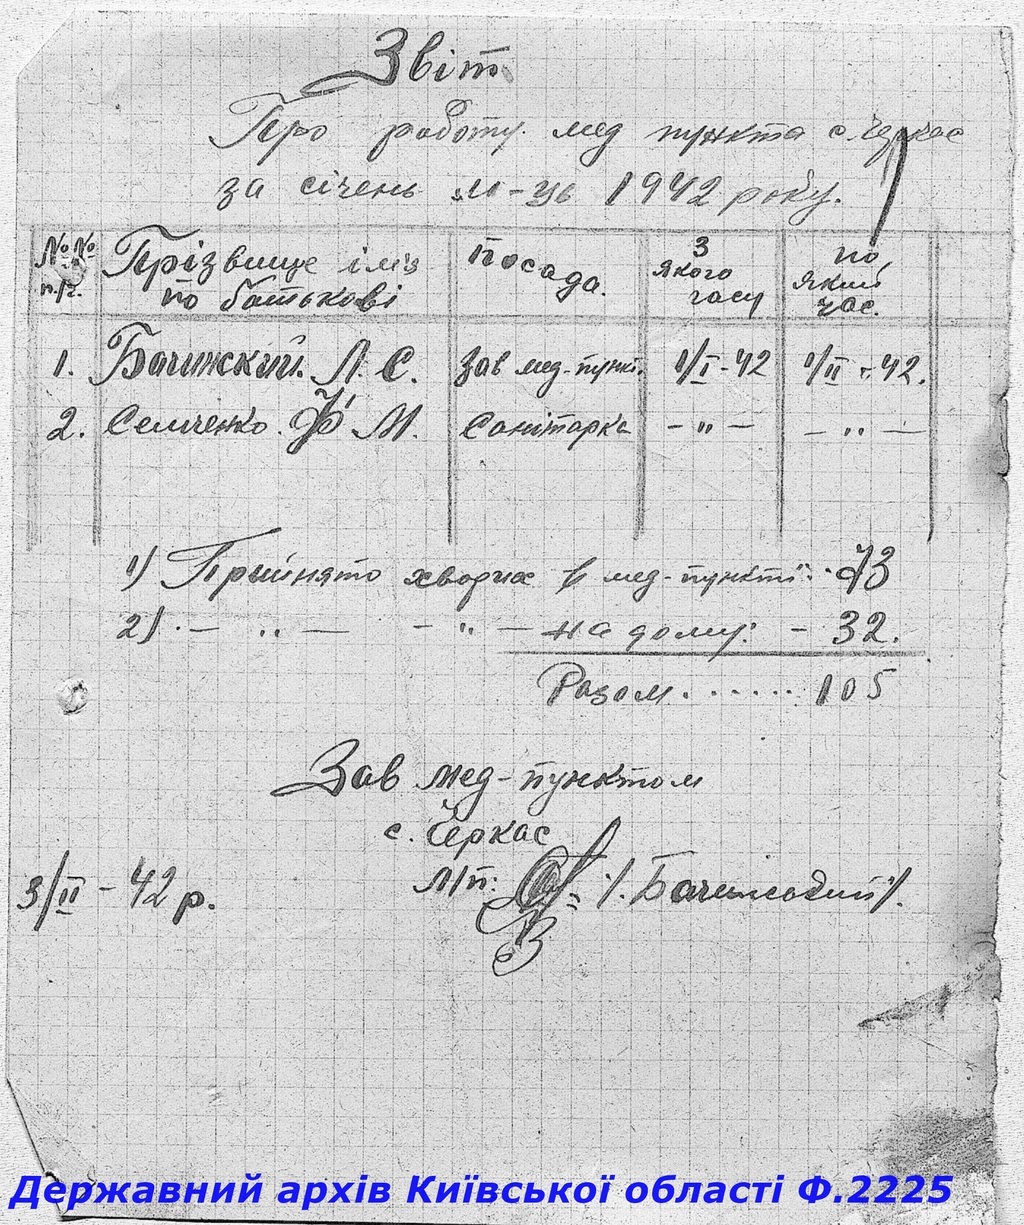 Звіт
Про роботу мед пункта с. Черкас
за січень м-ць 1942 року.
№№ п/г. Прізвище ім'я по батькові Посада. З якого часу по який час.
1. Бачинский. Л. С. Зав мед-пункт. 1/I-42 1/II-42.
2. Семченко. Ф. М. Санітарка - " - - " -
1) Прийнято хворих в мед-пункті: 73
2) - " - - " - на дому: - 32.
Разом....... 105
Зав мед-пунктом
с. Черкас
3/II-42 р. М/п: /. Бачинский /.
Державний архів Київської області Ф.2225